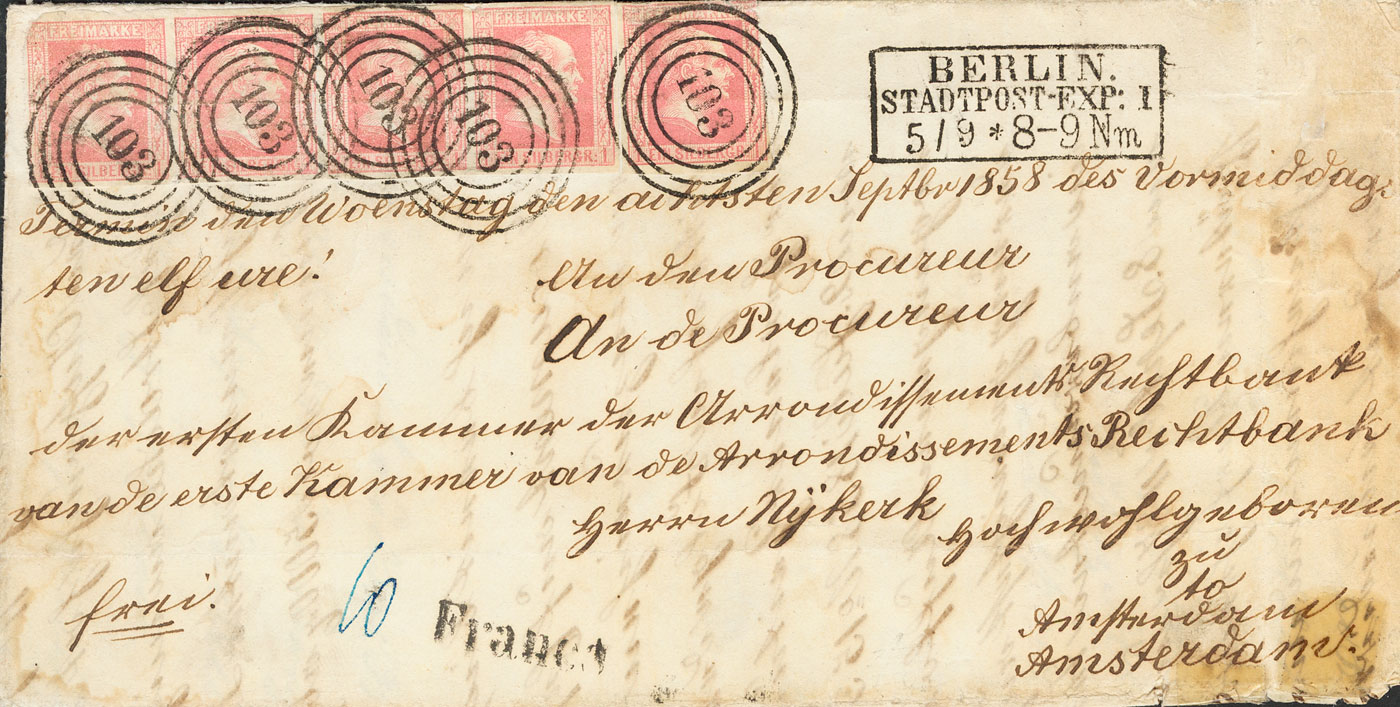 FREIMARKE FREIMARKE
SILBERGR. 1
103 103 103 103 103
BERLIN.
STADTPOST-EXP: I
5/9 * 8-9 Nm
Termin den Woenstag den achtsten Septbr 1858 des Vormiddags
ten elf ure!
An den Procureur
An de Procureur
der ersten Kammer der Arrondissements Rechtbank
van de erste Kammer van de Arrondissements Rechtbank
Herrn Nÿkerk Hochwohlgeboren
zu
to
Amsterdam
Amsterdam.
frei.
Franco